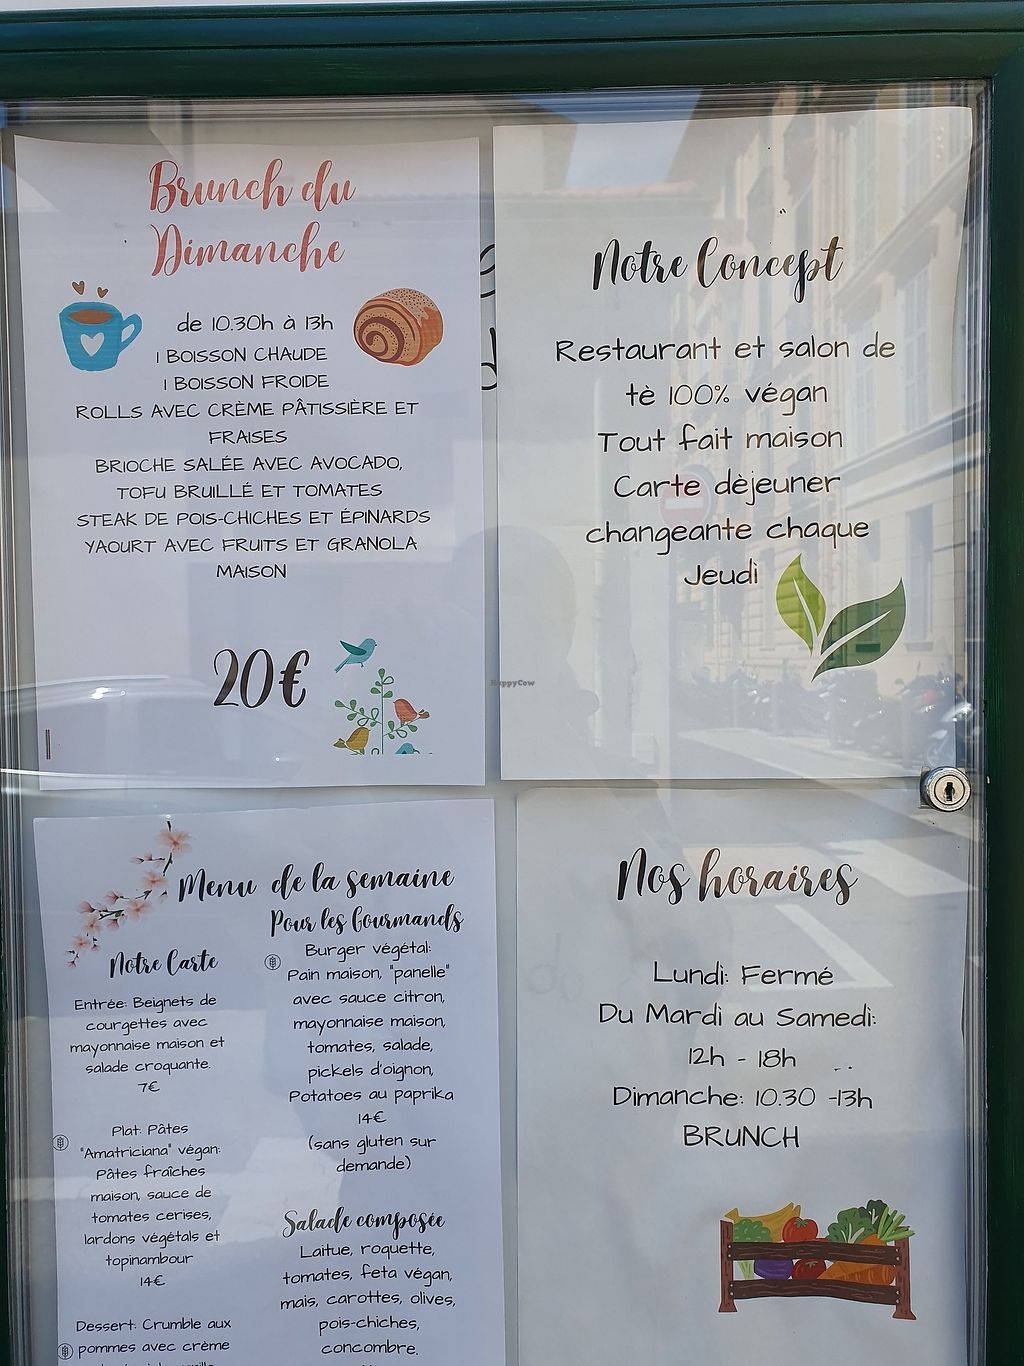 Brunch du
Dimanche
de 10.30h à 13h
1 BOISSON CHAUDE
1 BOISSON FROIDE
ROLLS AVEC CRÈME PÂTISSIÈRE ET
FRAISES
BRIOCHE SALÉE AVEC AVOCADO,
TOFU BRUILLÉ ET TOMATES
STEAK DE POIS-CHICHES ET ÉPINARDS
YAOURT AVEC FRUITS ET GRANOLA
MAISON
20€
Notre Concept
Restaurant et salon de
tè 100% végan
Tout fait maison
Carte dèjeuner
changeante chaque
Jeudi
HappyCow
Menu de la semaine
Notre Carte
Entrée: Beignets de
courgettes avec
mayonnaise maison et
salade croquante.
7€
Plat: Pâtes
"Amatriciana" végan:
Pâtes fraîches
maison, sauce de
tomates cerises,
lardons végétals et
topinambour
14€
Dessert: Crumble aux
pommes avec crème
Pour les Gourmands
Burger végétal:
Pain maison, "panelle"
avec sauce citron,
mayonnaise maison,
tomates, salade,
pickels d'oignon,
Potatoes au paprika
14€
(sans gluten sur
demande)
Salade composée
Laitue, roquette,
tomates, feta végan,
mais, carottes, olives,
pois-chiches,
concombre.
Nos horaires
Lundi: Fermé
Du Mardi au Samedi:
12h - 18h
Dimanche: 10.30 -13h
BRUNCH